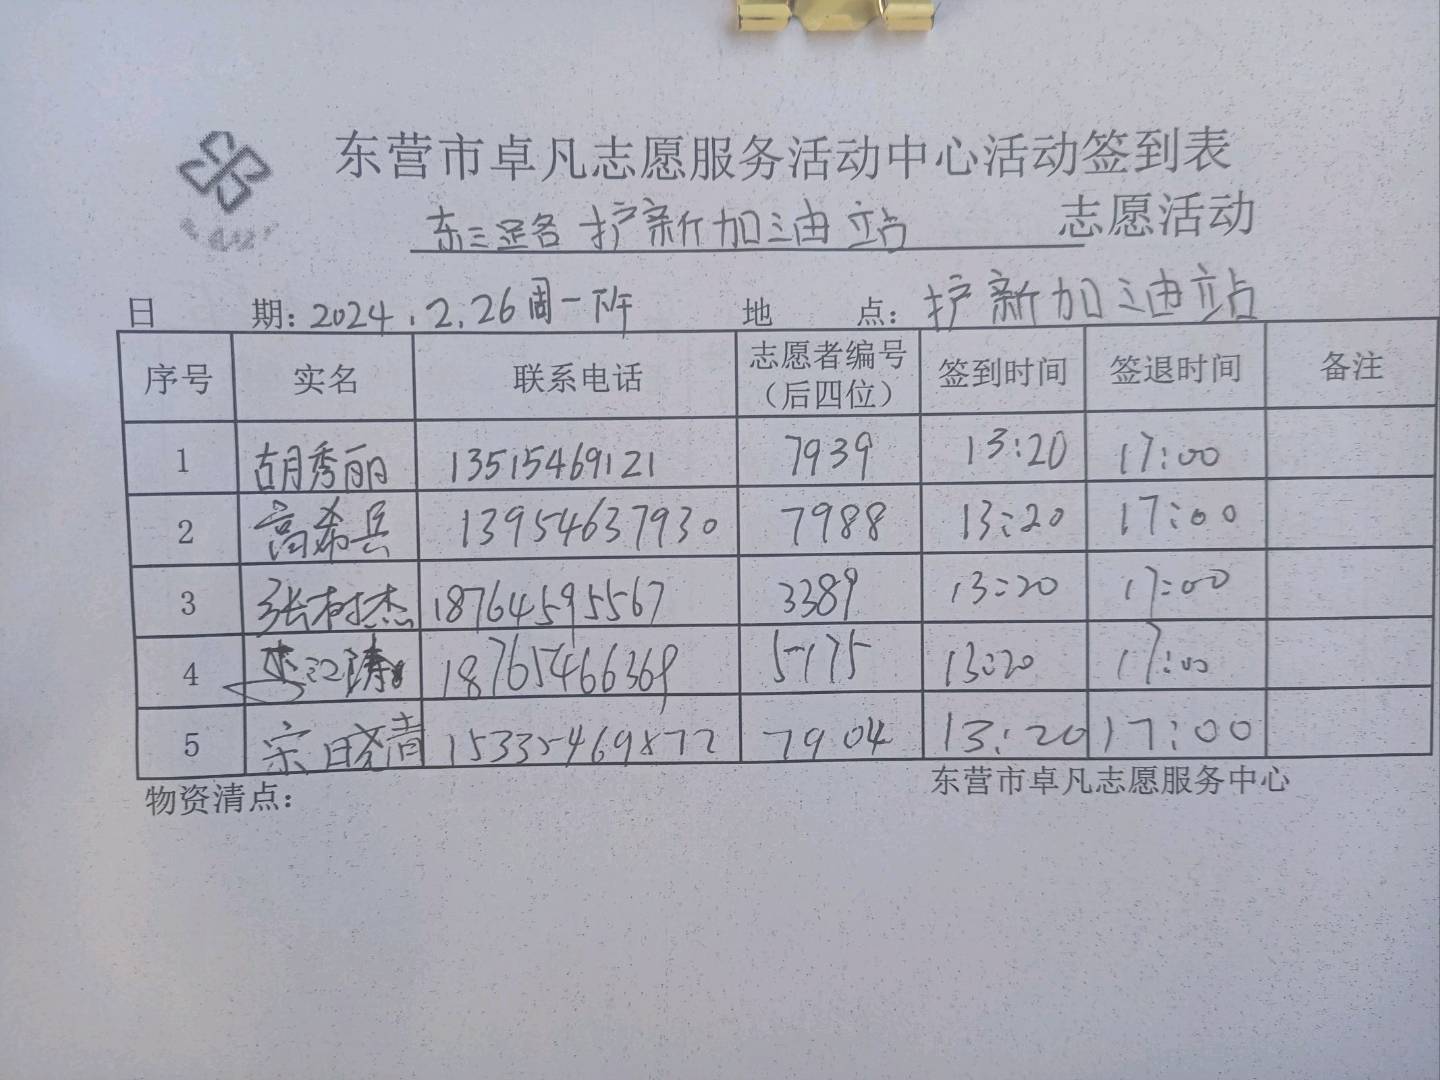 东营市卓凡志愿服务活动中心活动签到表
东三路 护新加油站 志愿活动
日 期：2024.2.26周一下午 地 点：护新加油站
序号 实名 联系电话 志愿者编号（后四位） 签到时间 签退时间 备注
1 胡秀丽 13515469121 7939 13:20 17:00
2 高希兵 13954637930 7988 13:20 17:00
3 张树杰 18764595567 3389 13:20 17:00
4 18765466369 5175 13:20 17:00
5 宋晓青 7904 13:20 17:00
物资清点： 东营市卓凡志愿服务中心